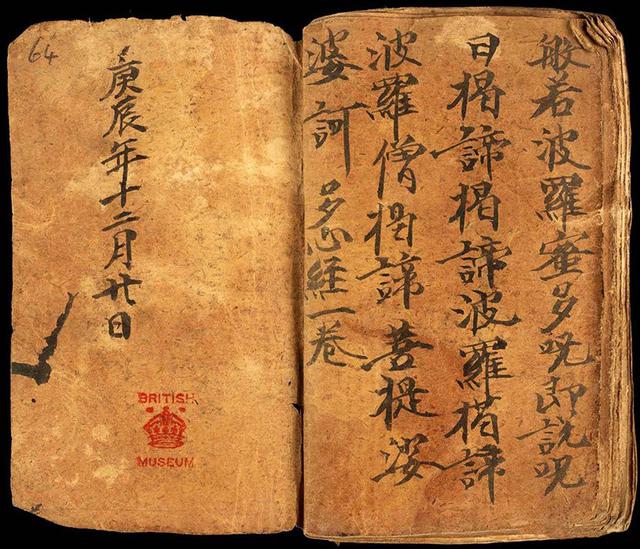 般若波羅蜜多呪即説呪
曰揭諦揭諦波羅揭諦
波羅僧揭諦菩提娑
婆訶 多心經一卷
庚辰年十二月廿日
64
BRITISH
MUSEUM